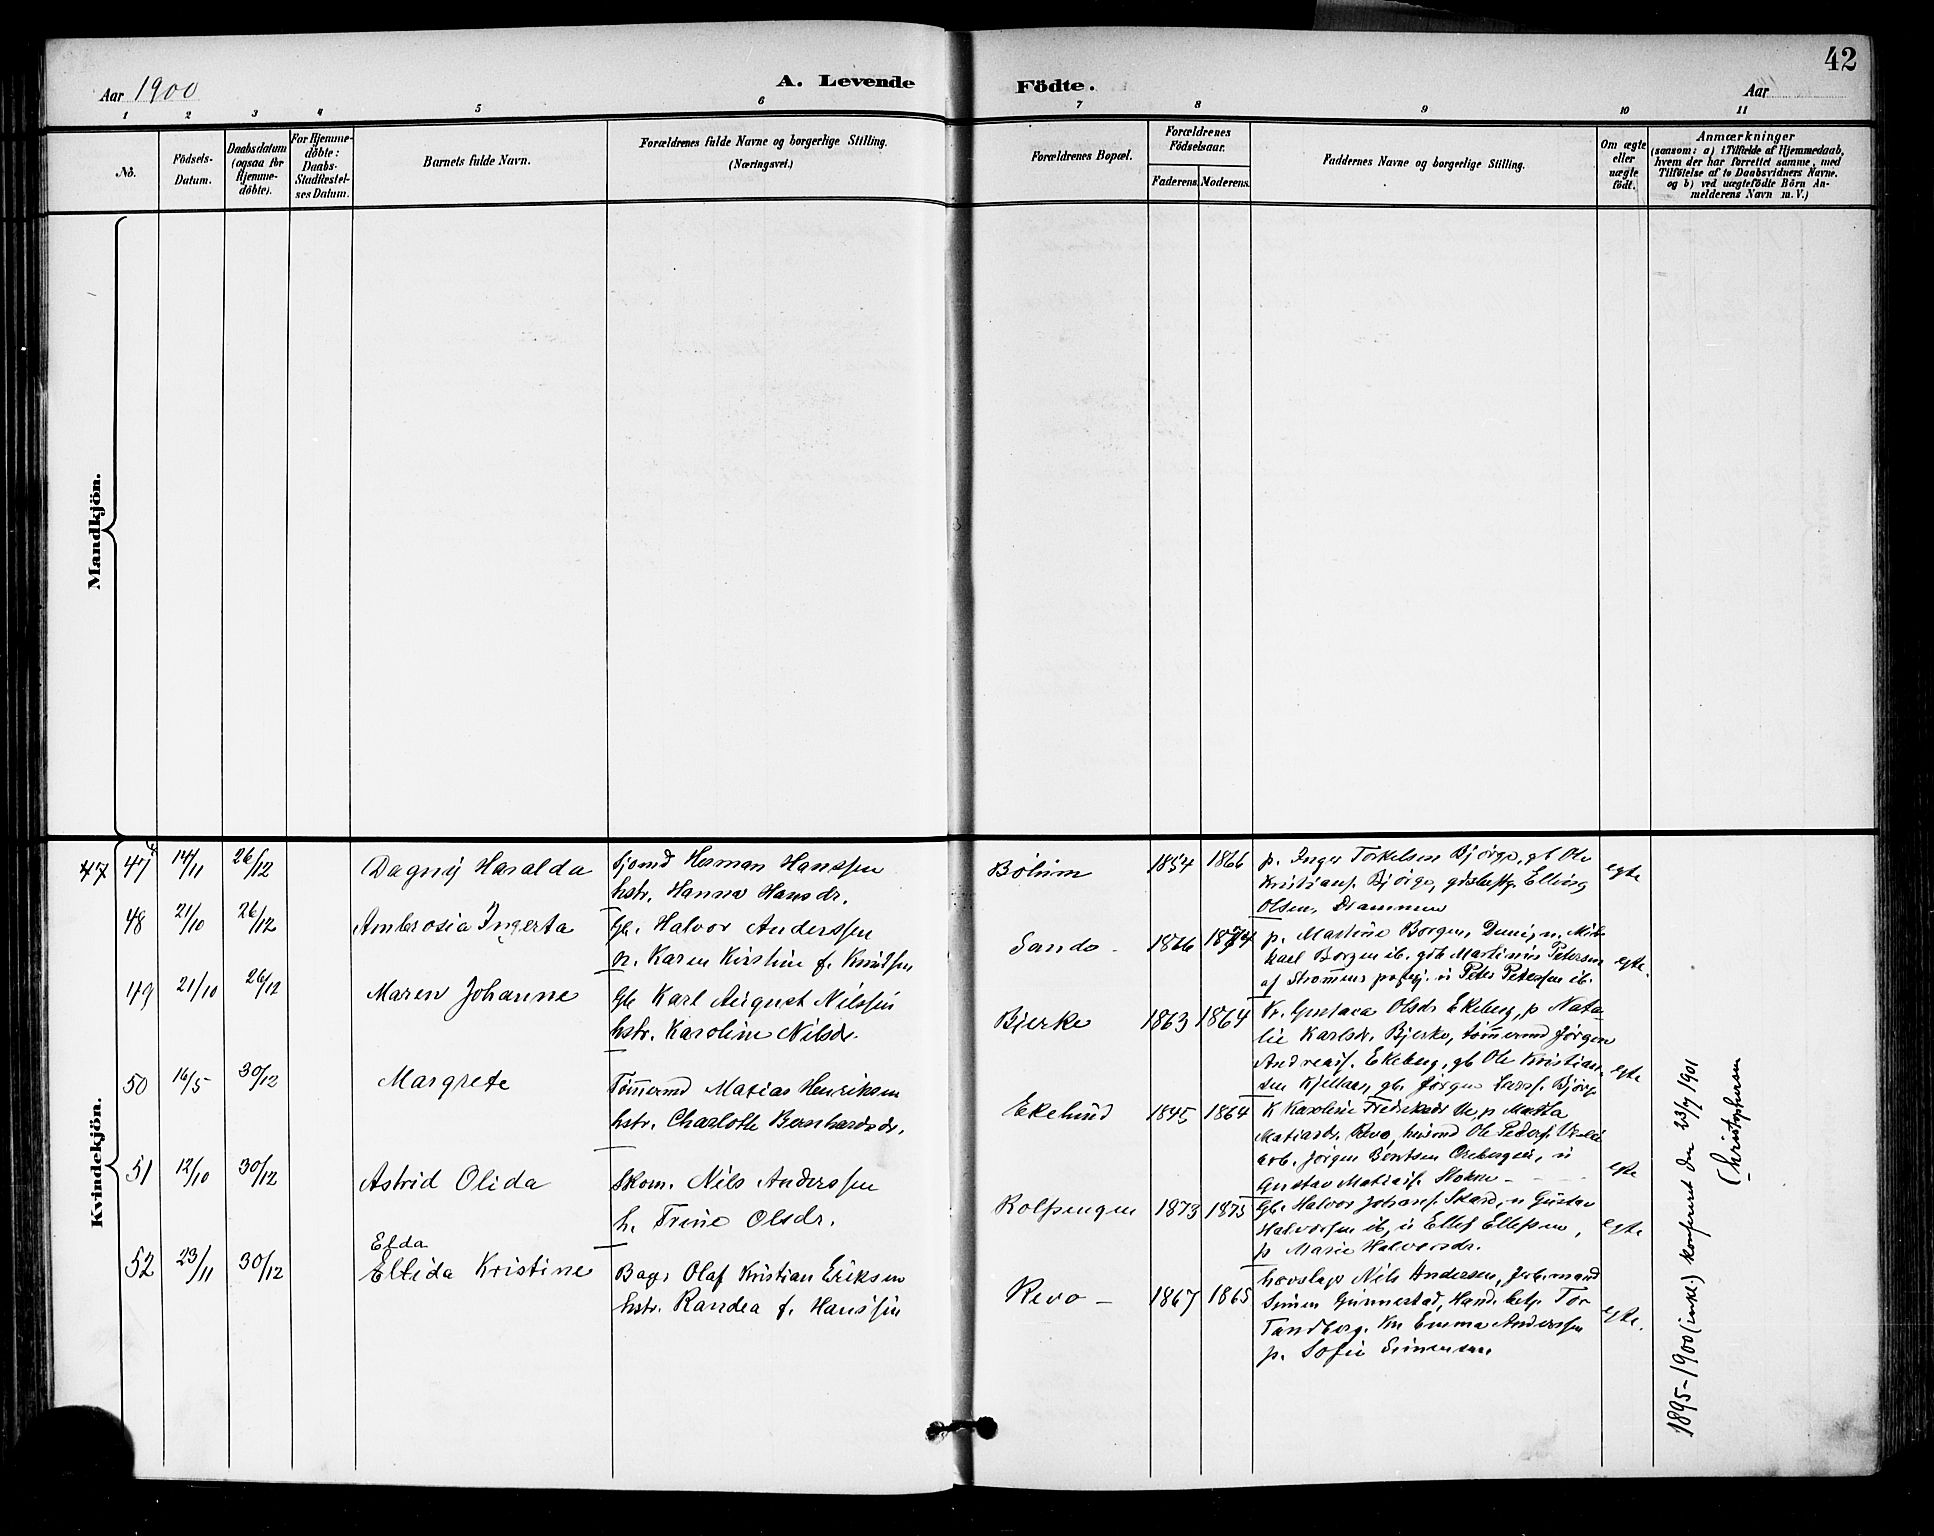 42
Aar 1900
A. Levende Födte.
Aar
1 2 3 4 5 6 7 8 9 10 11
No.
Födsels-Datum.
Daabsdatum (ogsaa for Hjemme-döbte).
For Hjemme-döbte: Daabs-Stadfæstel-ses Datum.
Barnets fulde Navn.
Forældrenes fulde Navne og borgerlige Stilling.
(Næringsvei.)
Forældrenes Bopæl.
Forældrenes Födselsaar.
Faderens. Moderens.
Faddernes Navne og borgerlige Stilling.
Om ægte eller uægte födt.
Anmærkninger
(saasom: a) i Tilfælde af Hjemmedaab,
hvem der har forrettet samme, med
Tilföielse af to Daabsvidners Navne,
og b) ved uægtefödte Börn An-
melderens Navn m. V.)
Mandkjön.
Kvindekjön.
47 47 14/11 26/12 Dagny Haralda
Herman Hanssen
hstr. Hanna Hansdr.
Bolum 1854 1866
p. Inger Torkelsen Björge, gb Ole
Kristians. Björge, Elling
Olsen, Drammen
egte
48 21/10 26/12 Ambrosia Ingerta
Gb. Halvor Anderssen
Karen Kirstine f. Knudsen
Sando - 1866 1874
p. Martine Borgen,
Borgen ib. gdb Martinius Petersen
Peter Peterssen ib.
egte.
49 21/10 26/12 Maren Johanne
Gb Karl August Nilssen
hstr. Karoline Nilsdr.
Bjerke 1863 1864
Kr. Gustava Olsdr Ekeberg, p Nata-
lie Karlsdr. Bjerke, tömmermd Jörgen
Andreass. Ekeberg, gb Ole Kristian-
sen Kjellaas, gb. Jörgen Larss. Björge
egte
50 16/5 30/12 Margrete
Tömmermd Matias Henriksen
hstr. Charlotte Bernhardsdr.
Ekelund 1845 1864
K Karoline Fredriksdr Ue p Marta
Matiasdr. Revo, husmd Ole Peders.
arb. Jörgen Berntsen
Gustav Matiass.
egte
51 12/10 30/12 Astrid Olida
Skom. Nils Anderssen
h. Trine Olsdr.
Kolpungen 1873 1875
Gb. Halvor Johans. Skard, u Gustav
Halvorsen ib, u Ellef Ellefsen,
p Marie Halvorsdr.
egte
Elda
52 23/11 30/12 Eltida Kristine
Bag. Olaf Kristian Eriksen
hstr. Randea f. Hanssen
Revo - 1867 1865
hovslag. Nils Andersen,
Simen Gunnestad, Hand. betj. Tor
Tandberg. Kn Emma Anderssen
p. Sofie Simensen
egte.
1895-1900 (inkl.) konfereret den 23/7 1901
Christophersen